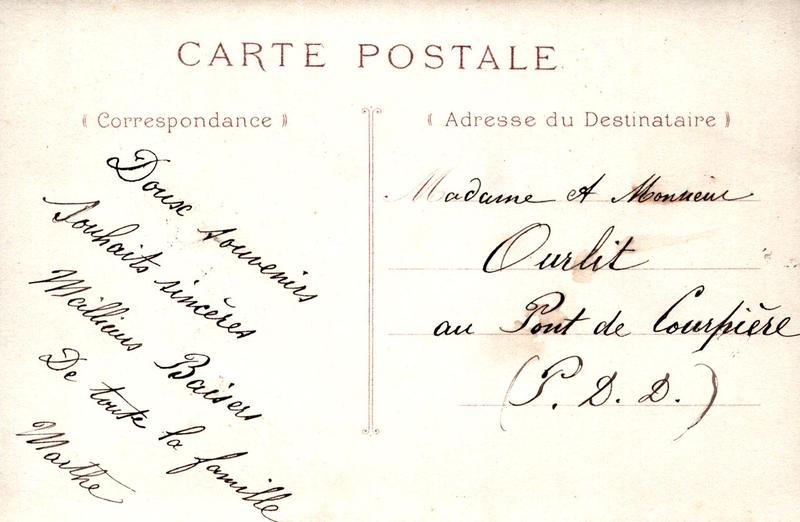 CARTE POSTALE
« Correspondance »
Doux souvenirs
Souhaits sincères
Meilleurs Baisers
De toute la famille
Marthe
« Adresse du Destinataire »
Madame et Monsieur
Ourlit
au Pont de Courpière
(P. D. D.)